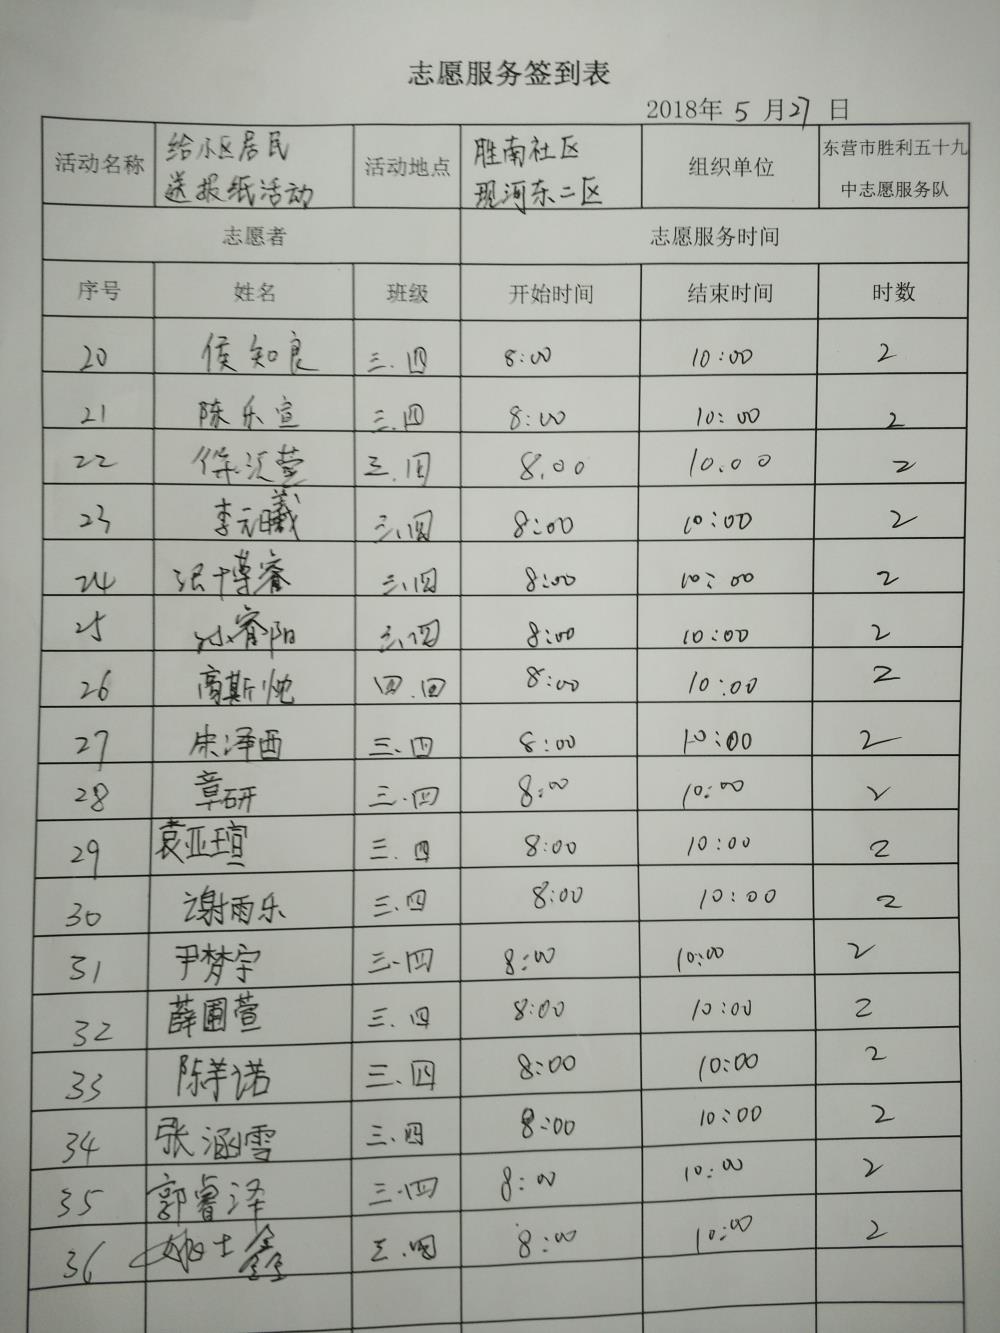 志愿服务签到表
2018年 5 月 27 日
活动名称 给小区居民送报纸活动 活动地点 胜南社区现河东二区 组织单位 东营市胜利五十九中志愿服务队
志愿者 志愿服务时间
序号 姓名 班级 开始时间 结束时间 时数
20 侯知良 三.四 8:00 10:00 2
21 陈乐宣 三.四 8:00 10:00 2
22 三.四 8.00 10.00 2
23 李元曦 三.四 8:00 10:00 2
24 张博睿 三.四 8:00 10:00 2
25 孙睿阳 三.四 8:00 10:00 2
26 高斯 四.四 8:00 10:00 2
27 宋泽西 三.四 8:00 10:00 2
28 章研 三.四 8:00 10:00 2
29 袁亚瑄 三.四 8:00 10:00 2
30 谢雨乐 三.四 8:00 10:00 2
31 尹梦宇 三.四 8:00 10:00 2
32 薛圃萱 三.四 8:00 10:00 2
33 陈羊诺 三.四 8:00 10:00 2
34 张涵雪 三.四 8:00 10:00 2
35 郭睿泽 三.四 8:00 10:00 2
36 姚士鑫 三.四 8:00 10:00 2